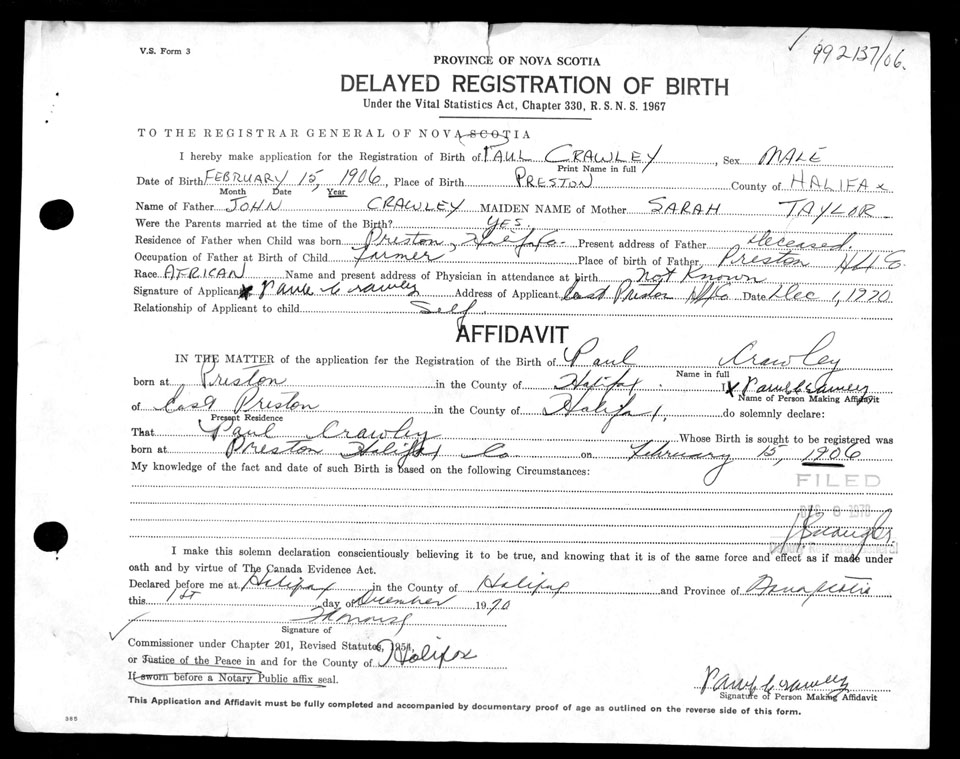 V.S. Form 3
992137/06.
PROVINCE OF NOVA SCOTIA
DELAYED REGISTRATION OF BIRTH
Under the Vital Statistics Act, Chapter 330, R.S.N.S. 1967
TO THE REGISTRAR GENERAL OF NOVA SCOTIA
I hereby make application for the Registration of Birth of PAUL CRAWLEY, Sex MALE
Print Name in full
Date of Birth FEBRUARY 15, 1906, Place of Birth PRESTON County of HALIFAX
Month Date Year
Name of Father JOHN CRAWLEY MAIDEN NAME of Mother SARAH TAYLOR
Were the Parents married at the time of the Birth? YES.
Residence of Father when Child was born Preston, Co. Present address of Father Deceased.
Occupation of Father at Birth of Child farmer Place of birth of Father Preston
Race AFRICAN Name and present address of Physician in attendance at birth Not Known
Signature of Applicant x Paul Crawley Address of Applicant East Preston Date Dec 1, 1970
Relationship of Applicant to child Self
AFFIDAVIT
IN THE MATTER of the application for the Registration of the Birth of Paul Crawley
Name in full
born at Preston in the County of Halifax. I X Paul Crawley
Name of Person Making Affidavit
of East Preston in the County of Halifax, do solemnly declare:
Present Residence
That Paul Crawley Whose Birth is sought to be registered was
born at Preston Halifax Co on February 15, 1906
My knowledge of the fact and date of such Birth is based on the following Circumstances:
FILED
1970
I make this solemn declaration conscientiously believing it to be true, and knowing that it is of the same force and effect as if made under
oath and by virtue of The Canada Evidence Act.
Declared before me at Halifax in the County of Halifax and Province of Nova Scotia
this 1st day of December 1970
Signature of
Commissioner under Chapter 201, Revised Statutes, 1954,
or Justice of the Peace in and for the County of Halifax
If sworn before a Notary Public affix seal.
Paul Crawley
Signature of Person Making Affidavit
This Application and Affidavit must be fully completed and accompanied by documentary proof of age as outlined on the reverse side of this form.
385